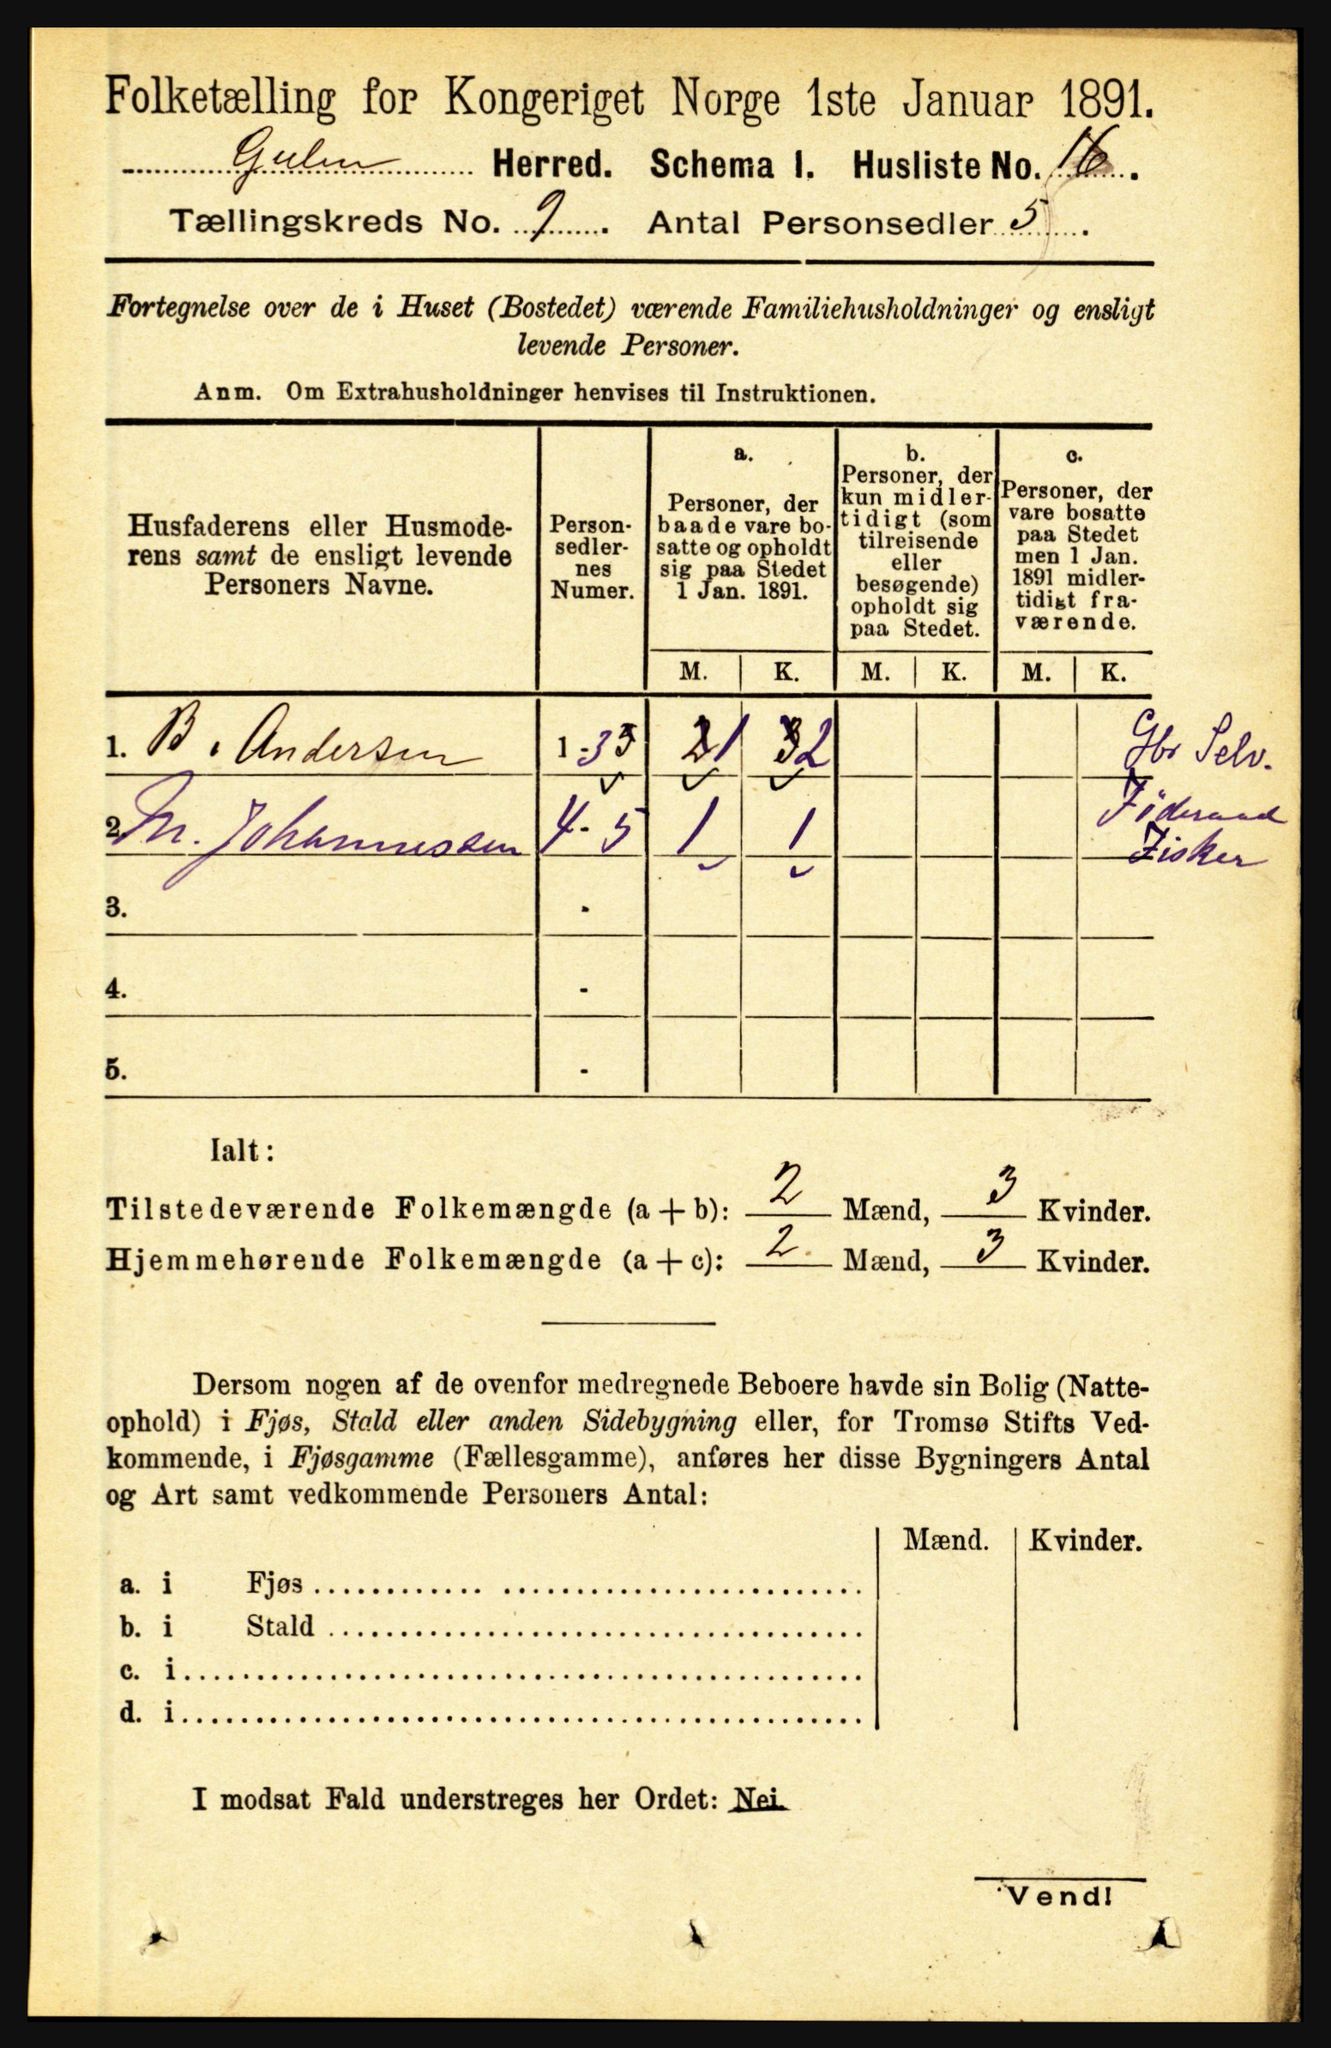 Folketælling for Kongeriget Norge 1ste Januar 1891.
Gulen Herred. Schema I. Husliste No. 16.
Tællingskreds No. 9. Antal Personsedler 5.
Fortegnelse over de i Huset (Bostedet) værende Familiehusholdninger og ensligt
levende Personer.
Anm. Om Extrahusholdninger henvises til Instruktionen.
Husfaderens eller Husmode-
rens samt de ensligt levende
Personers Navne.
Person-
sedler-
nes
Numer.
a.
Personer, der
baade vare bo-
satte og opholdt
sig paa Stedet
1 Jan. 1891.
b.
Personer, der
kun midler-
tidigt (som
tilreisende
eller
besøgende)
opholdt sig
paa Stedet.
c.
Personer, der
vare bosatte
paa Stedet
men 1 Jan.
1891 midler-
tidigt fra-
værende.
M. K. M. K. M. K.
1. B. Andersen 1-3 1 2 Gbr Selv.
2. M. Johannessen 4-5 1 1 Föderaad
Fisker
3. -
4. -
5. -
Ialt:
Tilstedeværende Folkemængde (a+b): 2 Mænd, 3 Kvinder.
Hjemmehørende Folkemængde (a+c): 2 Mænd, 3 Kvinder.
Dersom nogen af de ovenfor medregnede Beboere havde sin Bolig (Natte-
ophold) i Fjøs, Stald eller anden Sidebygning eller, for Tromsø Stifts Ved-
kommende, i Fjøsgamme (Fællesgamme), anføres her disse Bygningers Antal
og Art samt vedkommende Personers Antal:
Mænd. Kvinder.
a. i Fjøs
b. i Stald
c. i
d. i
I modsat Fald understreges her Ordet: Nei
Vend!